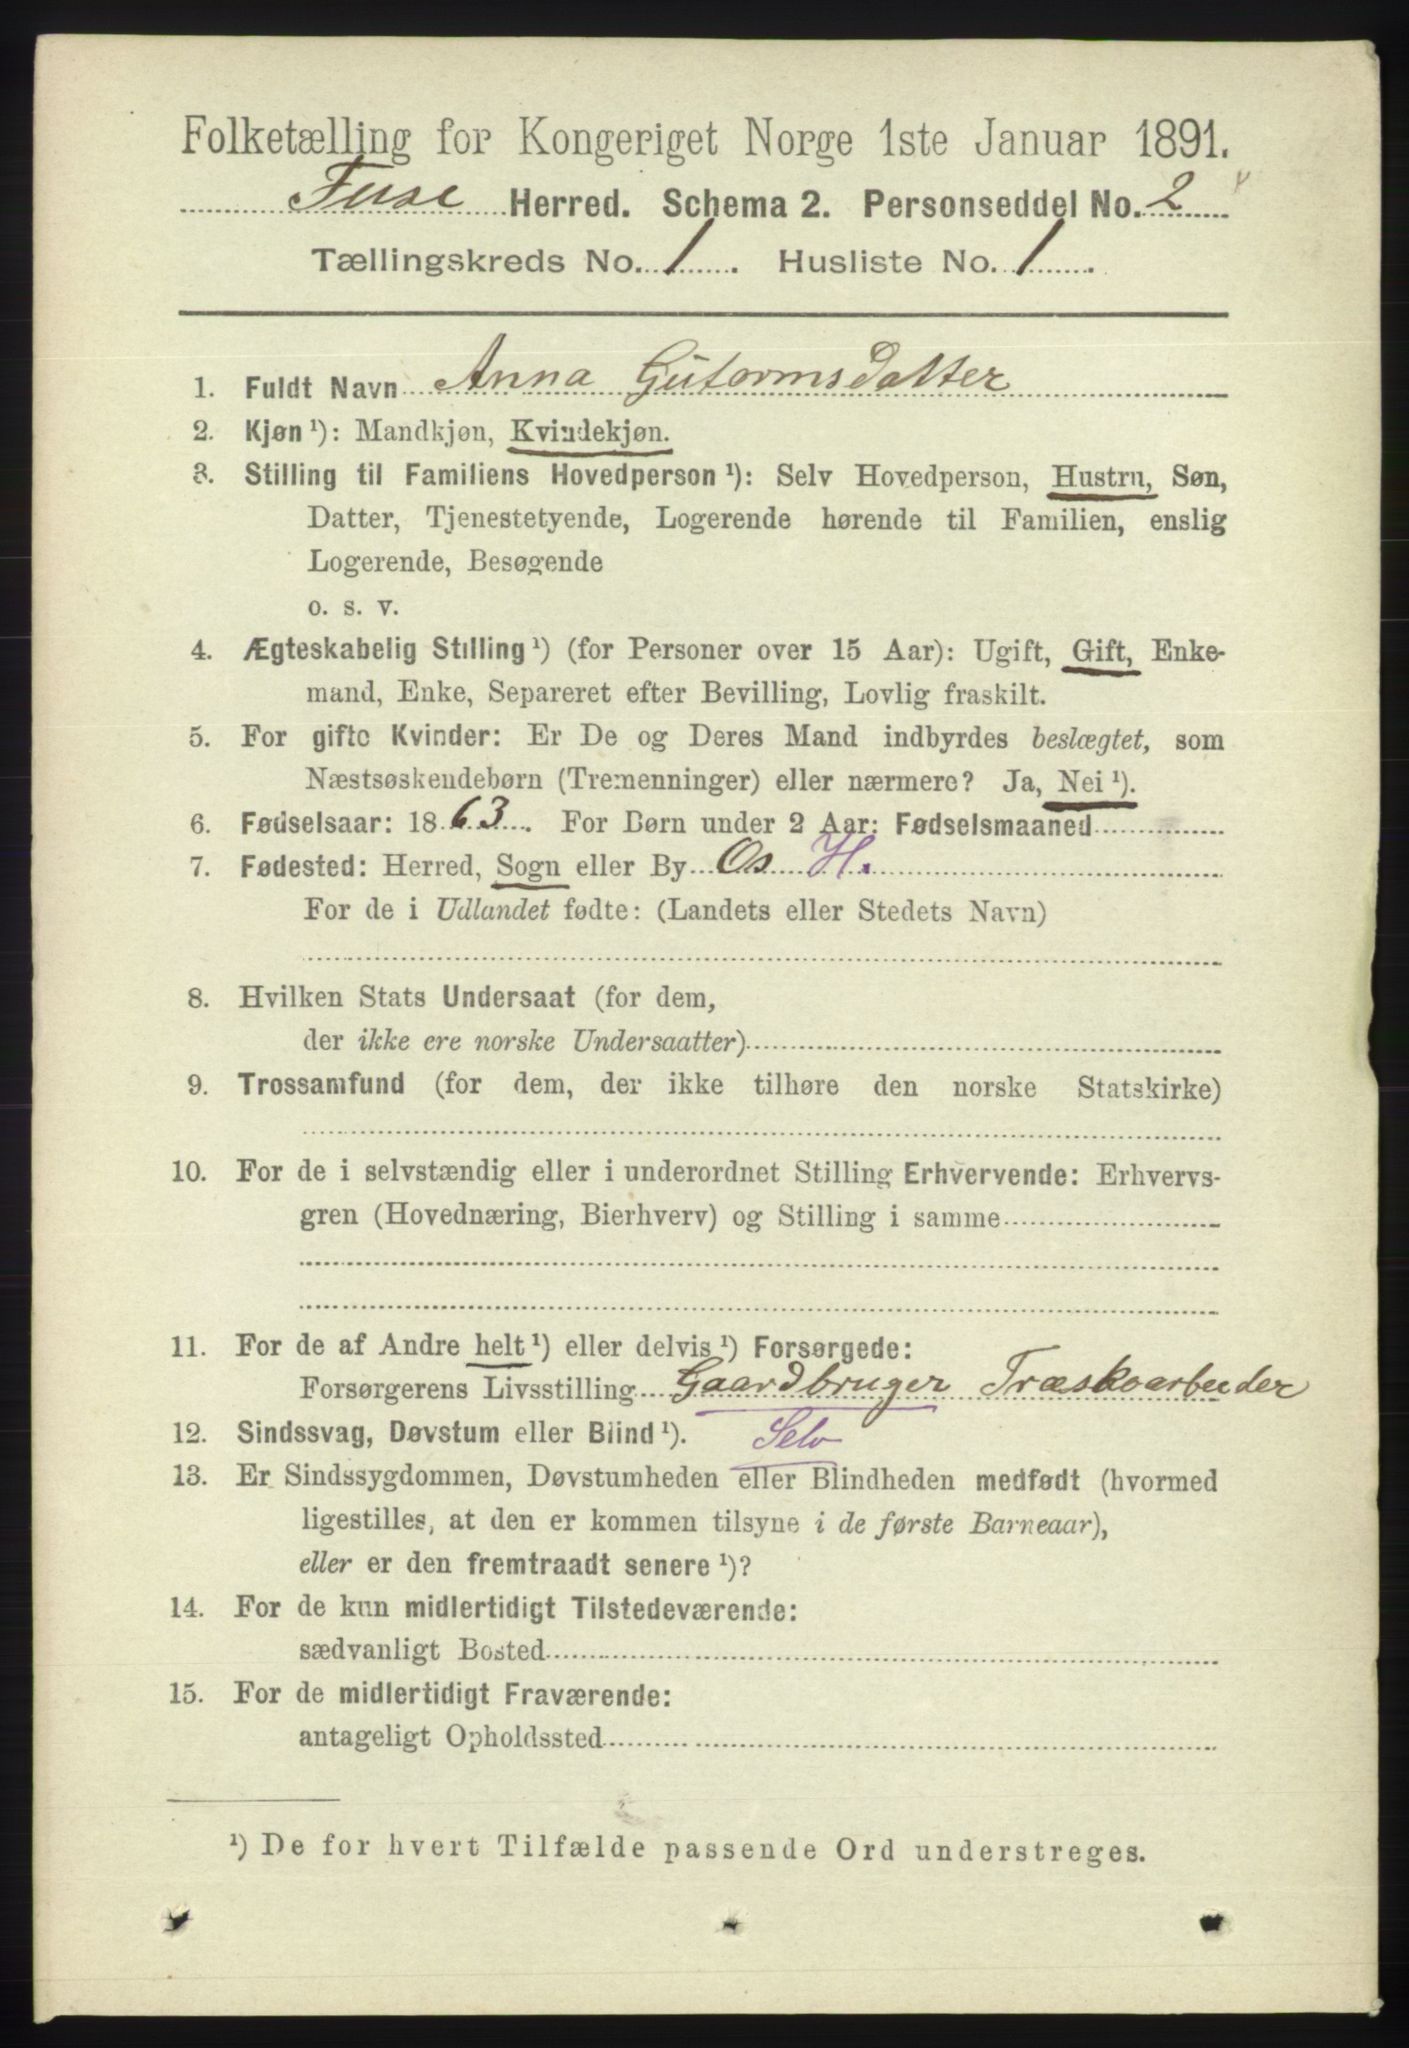 Folketælling for Kongeriget Norge 1ste Januar 1891.
Fuse Herred. Schema 2. Personseddel No. 2
Tællingskreds No. 1. Husliste No. 1.
1. Fuldt Navn Anna Gutormsdatter
2. Kjøn ¹): Mandkjøn, Kvindekjøn.
3. Stilling til Familiens Hovedperson ¹): Selv Hovedperson, Hustru, Søn,
Datter, Tjenestetyende, Logerende hørende til Familien, enslig
Logerende, Besøgende
o. s. v.
4. Ægteskabelig Stilling ¹) (for Personer over 15 Aar): Ugift, Gift, Enke-
mand, Enke, Separeret efter Bevilling, Lovlig fraskilt.
5. For gifte Kvinder: Er De og Deres Mand indbyrdes beslægtet, som
Næstsøskendebørn (Tremenninger) eller nærmere? Ja, Nei ¹).
6. Fødselsaar: 1863. For Børn under 2 Aar: Fødselsmaaned
7. Fødested: Herred, Sogn eller By Os H.
For de i Udlandet fødte: (Landets eller Stedets Navn)
8. Hvilken Stats Undersaat (for dem,
der ikke ere norske Undersaatter)
9. Trossamfund (for dem, der ikke tilhøre den norske Statskirke)
10. For de i selvstændig eller i underordnet Stilling Erhvervende: Erhvervs-
gren (Hovednæring, Bierhverv) og Stilling i samme
11. For de af Andre helt ¹) eller delvis ¹) Forsørgede:
Forsørgerens Livsstilling Gaardbruger Træskoarbeider
12. Sindssvag, Døvstum eller Blind ¹). Selv
13. Er Sindssygdommen, Døvstumheden eller Blindheden medfødt (hvormed
ligestilles, at den er kommen tilsyne i de første Barneaar),
eller er den fremtraadt senere ¹)?
14. For de kun midlertidigt Tilstedeværende:
sædvanligt Bosted
15. For de midlertidigt Fraværende:
antageligt Opholdssted
¹) De for hvert Tilfælde passende Ord understreges.